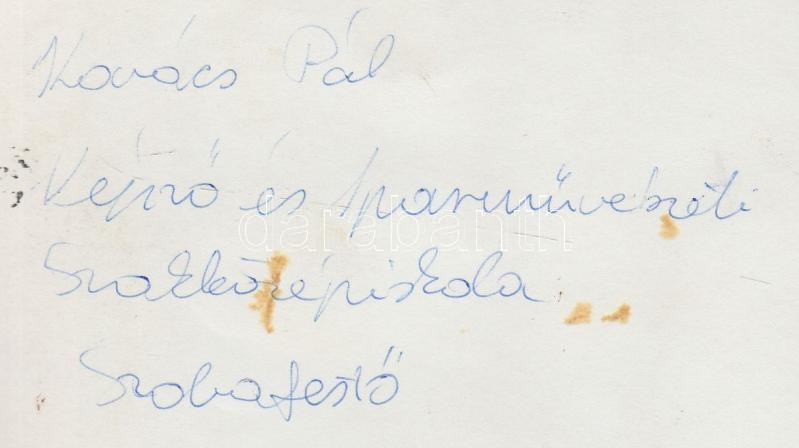 Kovács Pál
Képző és Iparművészeti
Szakközépiskola
Szobafestő
darabanth